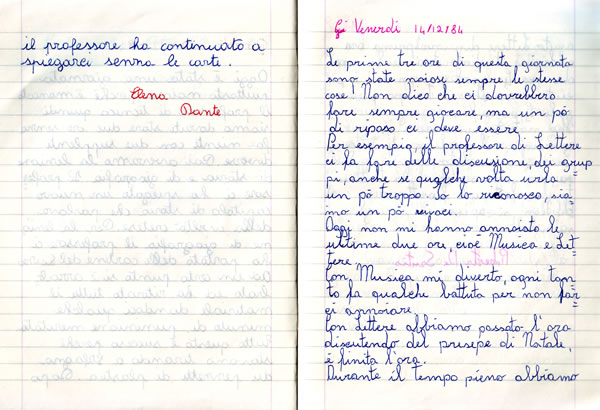 il professore ha continuato a
spiegarci senza le carte.
Elena
Dante
Venerdì 14/12/84
Le prime tre ore di questa giornata
sono state noiose sempre le stesse
cose! Non dico che ci dovrebbero
fare sempre giocare, ma un pò
di riposo ci deve essere.
Per esempio, il professore di Lettere
ci fa fare delle discussione, dei grup
pi, anche se qualche volta urla
un pò troppo. Io lo riconosco, sia=
mo un pò vivaci.
Oggi non mi hanno annoiato le
ultime due ore, cioè Musica e Let
tere.
Con Musica mi diverto, ogni tan=
to fa qualche battuta per non far
ci annoiare.
Con Lettere abbiamo passato l'ora
discutendo del presepe di Natale,
è finita l'ora.
Durante il tempo pieno abbiamo